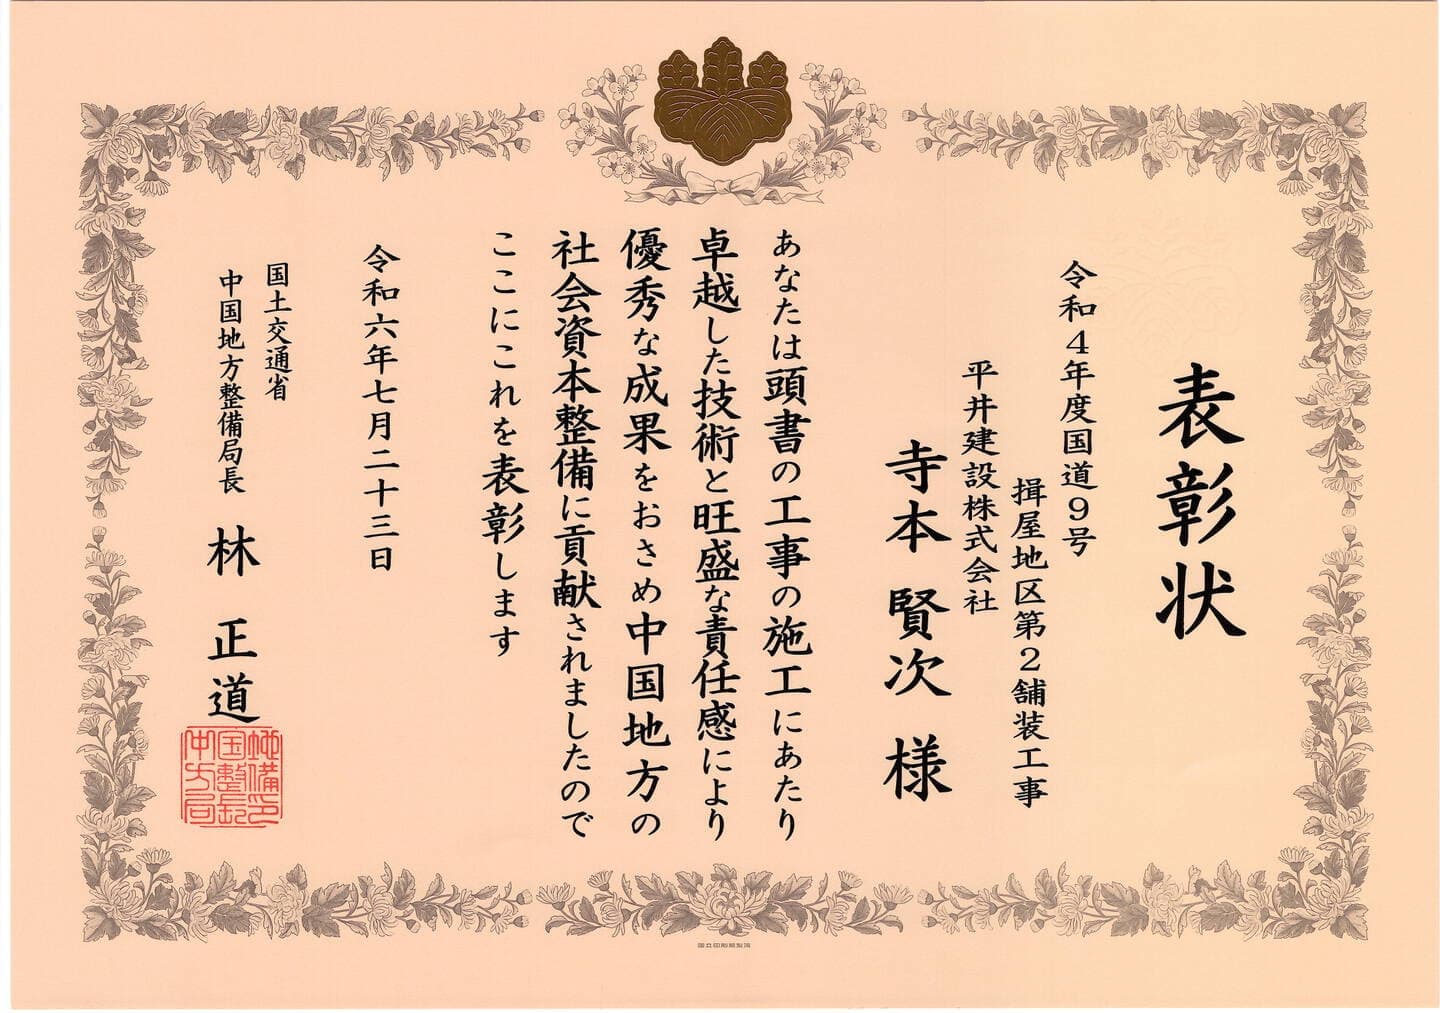 表彰状
令和4年度国道9号
揖屋地区第2舗装工事
平井建設株式会社
寺本 賢次 様
あなたは頭書の工事の施工にあたり
卓越した技術と旺盛な責任感により
優秀な成果をおさめ中国地方の
社会資本整備に貢献されましたので
ここにこれを表彰します
令和六年七月二十三日
国土交通省
中国地方整備局長 林 正道
国立印刷局製造